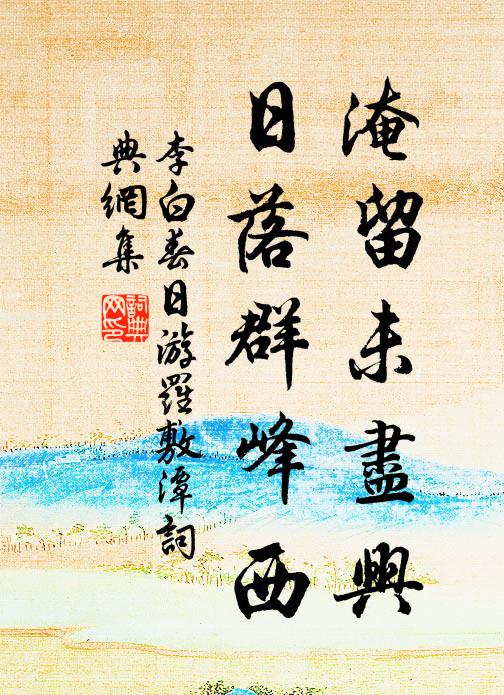 淹留未盡興
日落群峰西
李白春日游羅敷潭詞
典網集
詞典網印